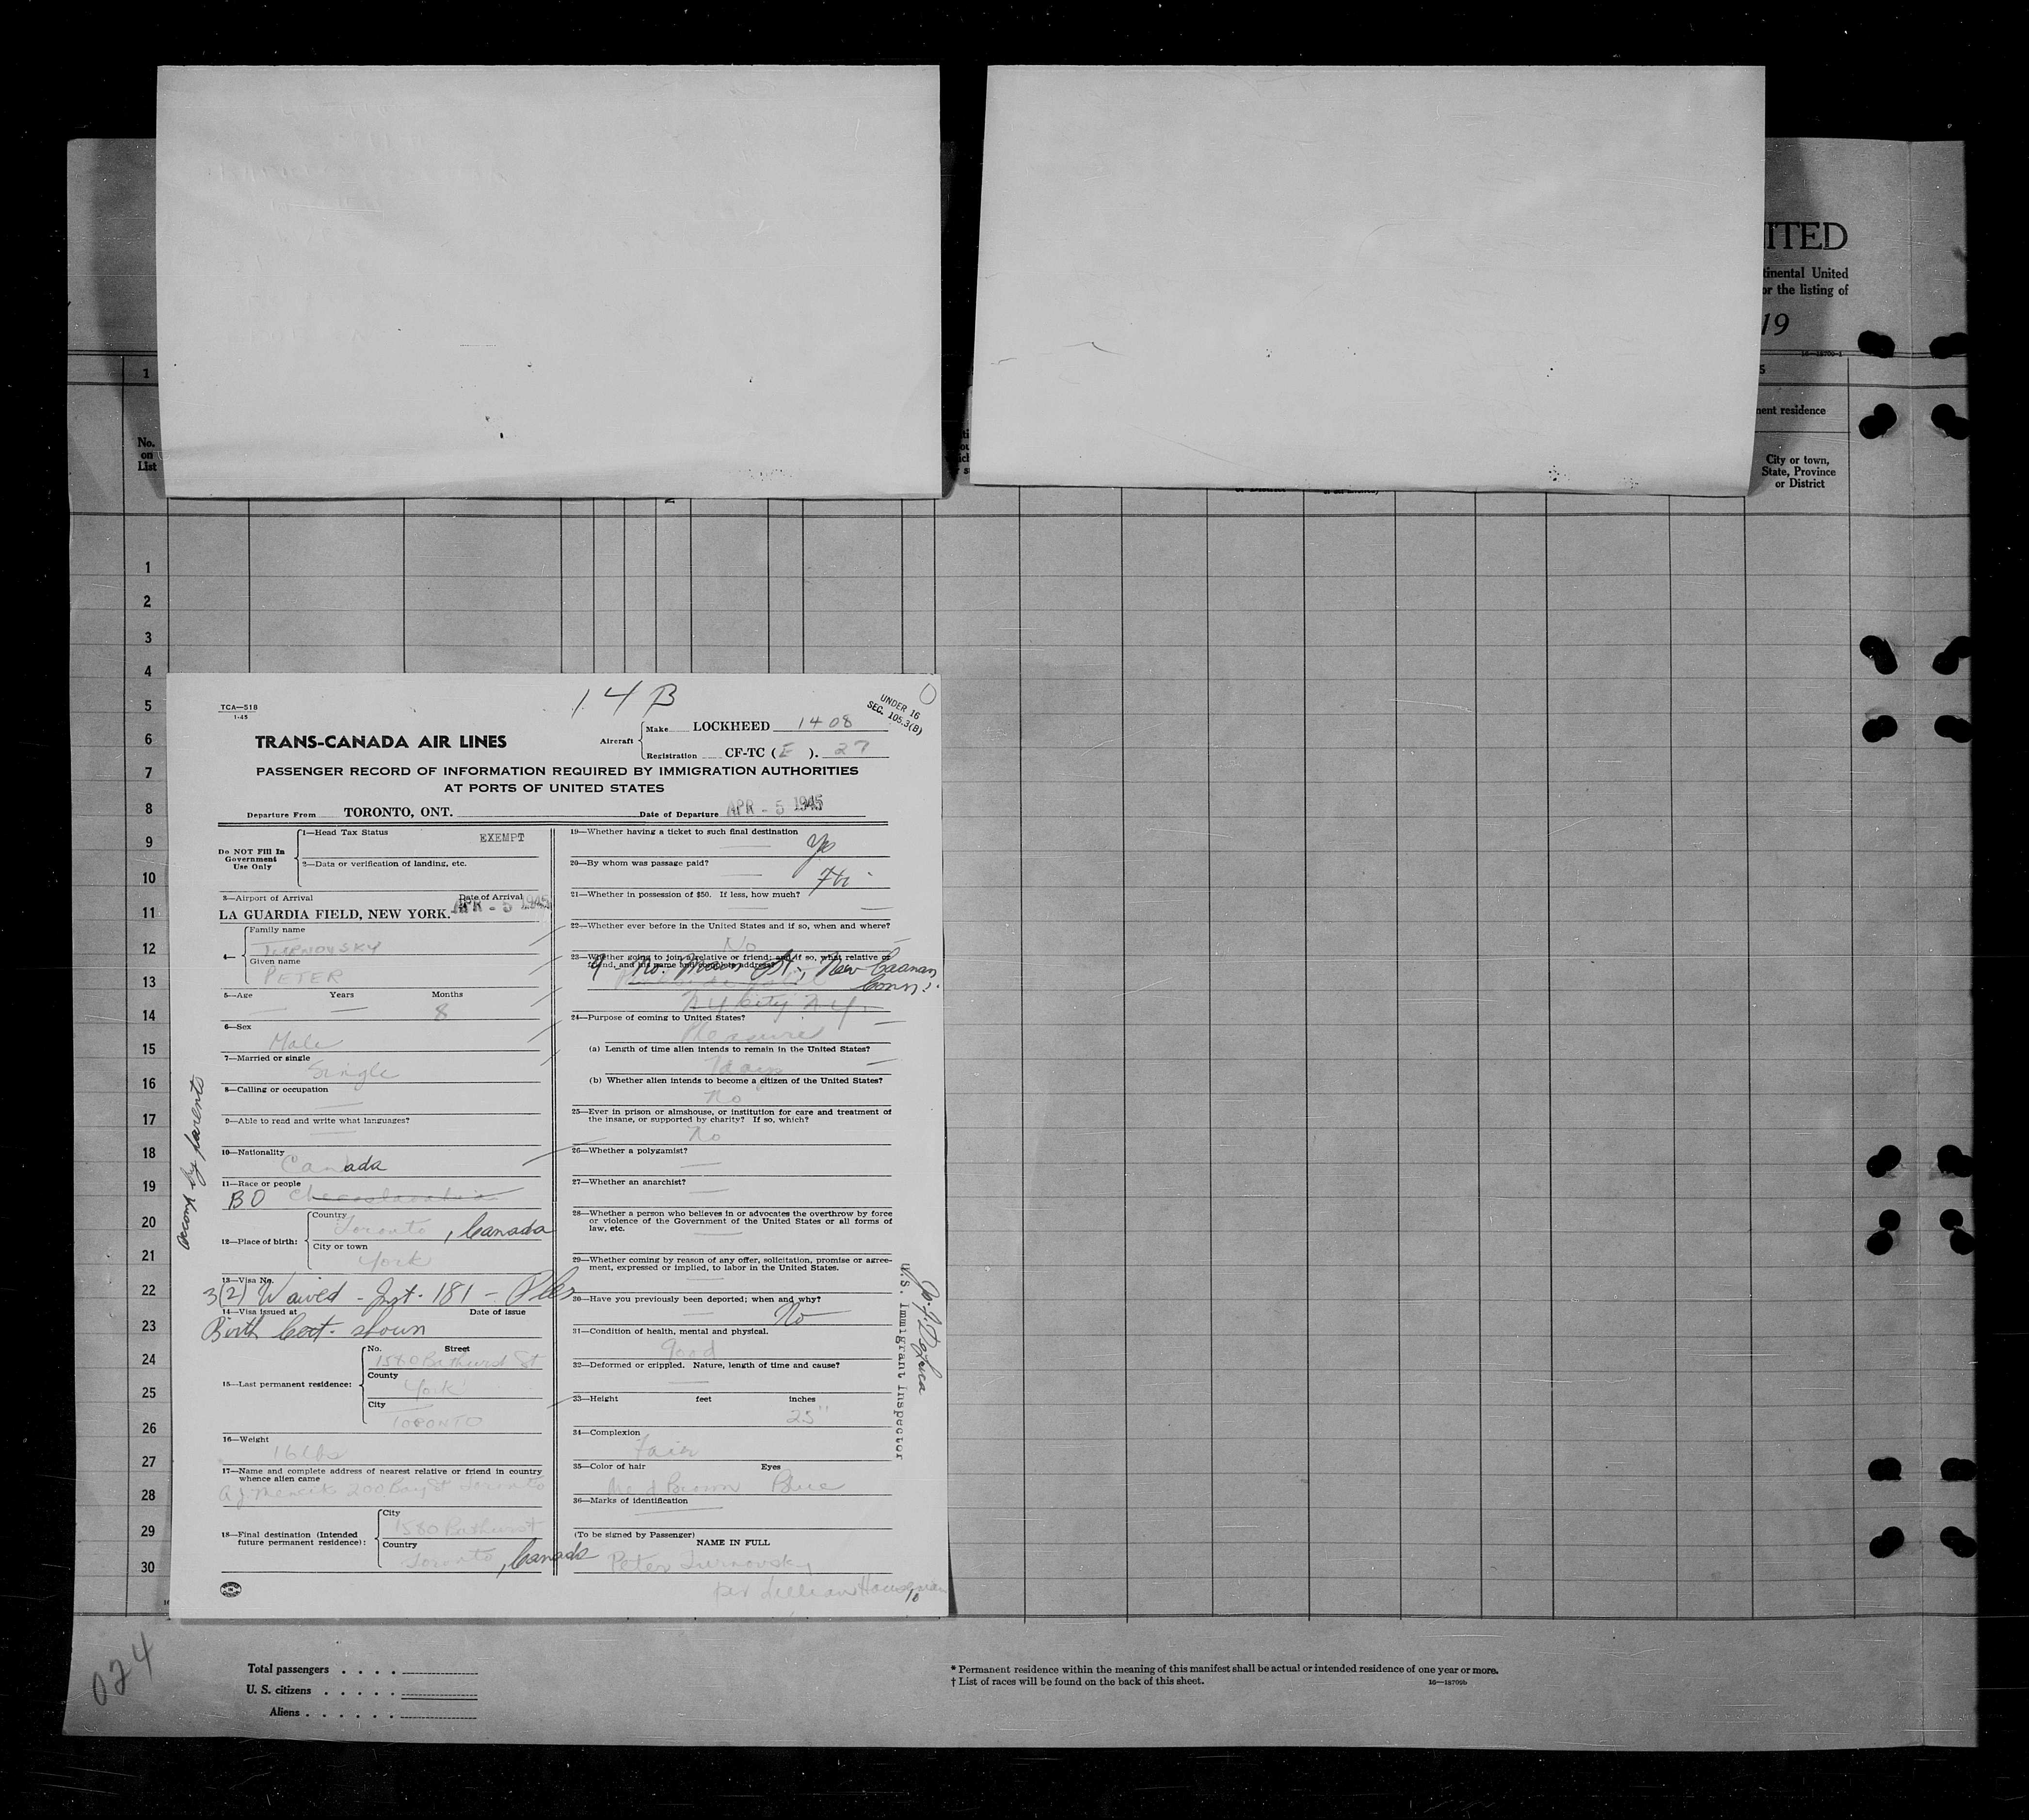 ITED
tinental United
or the listing of
19
16—18709-1
1
5
ent residence
No.
on
List
City or town,
State, Province
or District
1
2
3
4
5
6
7
8
9
10
11
12
13
14
15
16
17
18
19
20
21
22
23
24
25
26
27
28
29
30
14 B
UNDER 16
SEC. 105.3(B)
TCA—518
1-45
TRANS-CANADA AIR LINES
Aircraft
Make LOCKHEED 1408
Registration CF-TC (E). 27
PASSENGER RECORD OF INFORMATION REQUIRED BY IMMIGRATION AUTHORITIES
AT PORTS OF UNITED STATES
Departure From TORONTO, ONT. Date of Departure APR - 5 1945
Do NOT Fill In
Government
Use Only
1—Head Tax Status EXEMPT
2—Data or verification of landing, etc.
3—Airport of Arrival Date of Arrival
LA GUARDIA FIELD, NEW YORK. APR - 5 1945
4—
Family name
TURNOVSKY
Given name
PETER
5—Age Years Months
8
6—Sex
Male
7—Married or single
Single
8—Calling or occupation
9—Able to read and write what languages?
10—Nationality
Canada
11—Race or people
BO
12—Place of birth:
Country
Toronto, Canada
City or town
York
13—Visa No.
3(2) Waived - Jgt. 181 - Ples
14—Visa issued at Date of issue
Birth Cert. shown
15—Last permanent residence:
No. Street
1580 Bathurst St
County
York
City
TORONTO
16—Weight
16 lbs
17—Name and complete address of nearest relative or friend in country
whence alien came
200 Bay St Toronto
18—Final destination (Intended
future permanent residence):
City
1580 Bathurst
Country
Toronto, Canada
accomp by parents
19—Whether having a ticket to such final destination
Yes
20—By whom was passage paid?
21—Whether in possession of $50. If less, how much?
22—Whether ever before in the United States and if so, when and where?
No
23—Whether going to join a relative or friend; and if so, what relative or
friend, and his name and complete address?
9 No. Main St., New Caanan
Conn.
N Y City N Y.
24—Purpose of coming to United States?
Pleasure
(a) Length of time alien intends to remain in the United States?
7 days
(b) Whether alien intends to become a citizen of the United States?
No
25—Ever in prison or almshouse, or institution for care and treatment of
the insane, or supported by charity? If so, which?
No
26—Whether a polygamist?
27—Whether an anarchist?
28—Whether a person who believes in or advocates the overthrow by force
or violence of the Government of the United States or all forms of
law, etc.
29—Whether coming by reason of any offer, solicitation, promise or agree-
ment, expressed or implied, to labor in the United States.
30—Have you previously been deported; when and why?
No
31—Condition of health, mental and physical.
good
32—Deformed or crippled. Nature, length of time and cause?
33—Height feet inches
25"
34—Complexion
Fair
35—Color of hair Eyes
Med Brown Blue
36—Marks of identification
(To be signed by Passenger)
NAME IN FULL
Peter Turnovsky
per Lillian Hausman
10
U.S. Immigrant Inspector
024
Total passengers . . . .
U. S. citizens . . . . .
Aliens . . . . . .
* Permanent residence within the meaning of this manifest shall be actual or intended residence of one year or more.
† List of races will be found on the back of this sheet.
16—18709b